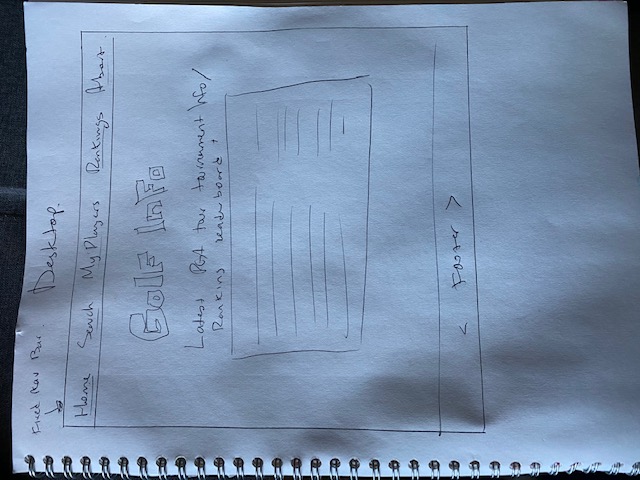 Fixed Nav Bar.
Desktop.
Home Search My Players Rankings About.
Golf InFo
Latest PGA tour tournament Info/
Ranking leaderboard
< Footer >